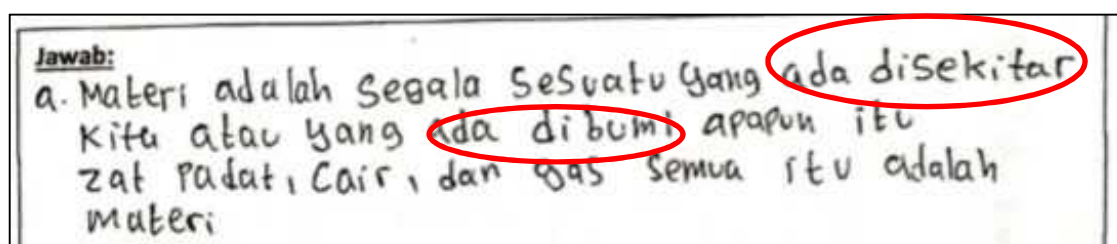 Jawab:
a. Materi adalah segala sesuatu yang ada disekitar
kita atau yang ada dibumi apapun itu
zat padat, cair, dan gas semua itu adalah
materi